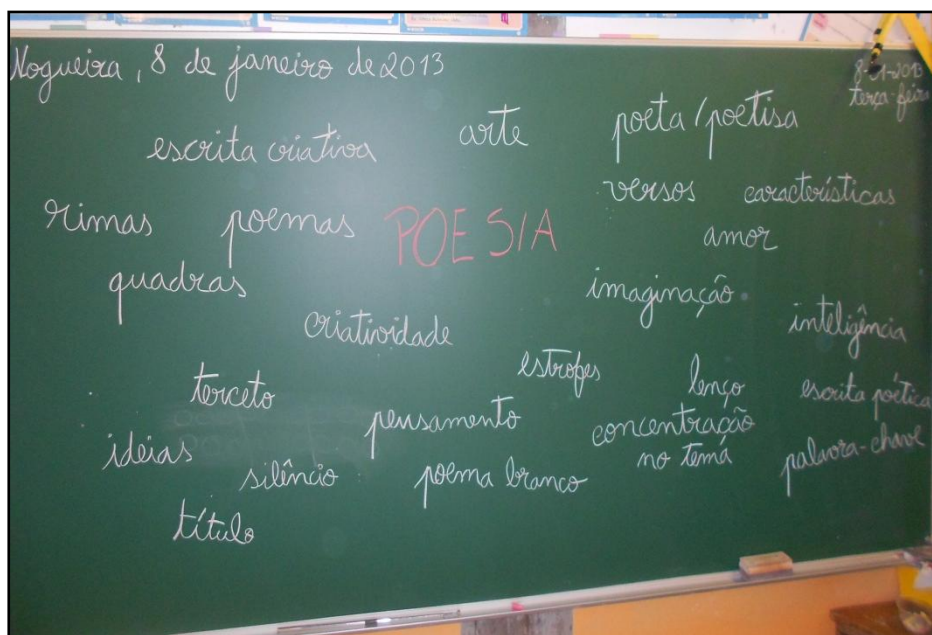 Nogueira, 8 de janeiro de 2013
8-01-2013
terça-feira
escrita criativa
arte
poeta/poetisa
versos
características
rimas
poemas
POESIA
amor
quadras
imaginação
criatividade
inteligência
estrofes
terceto
lenço
escrita poética
pensamento
concentração
no tema
ideias
palavra-chave
silêncio
poema branco
título